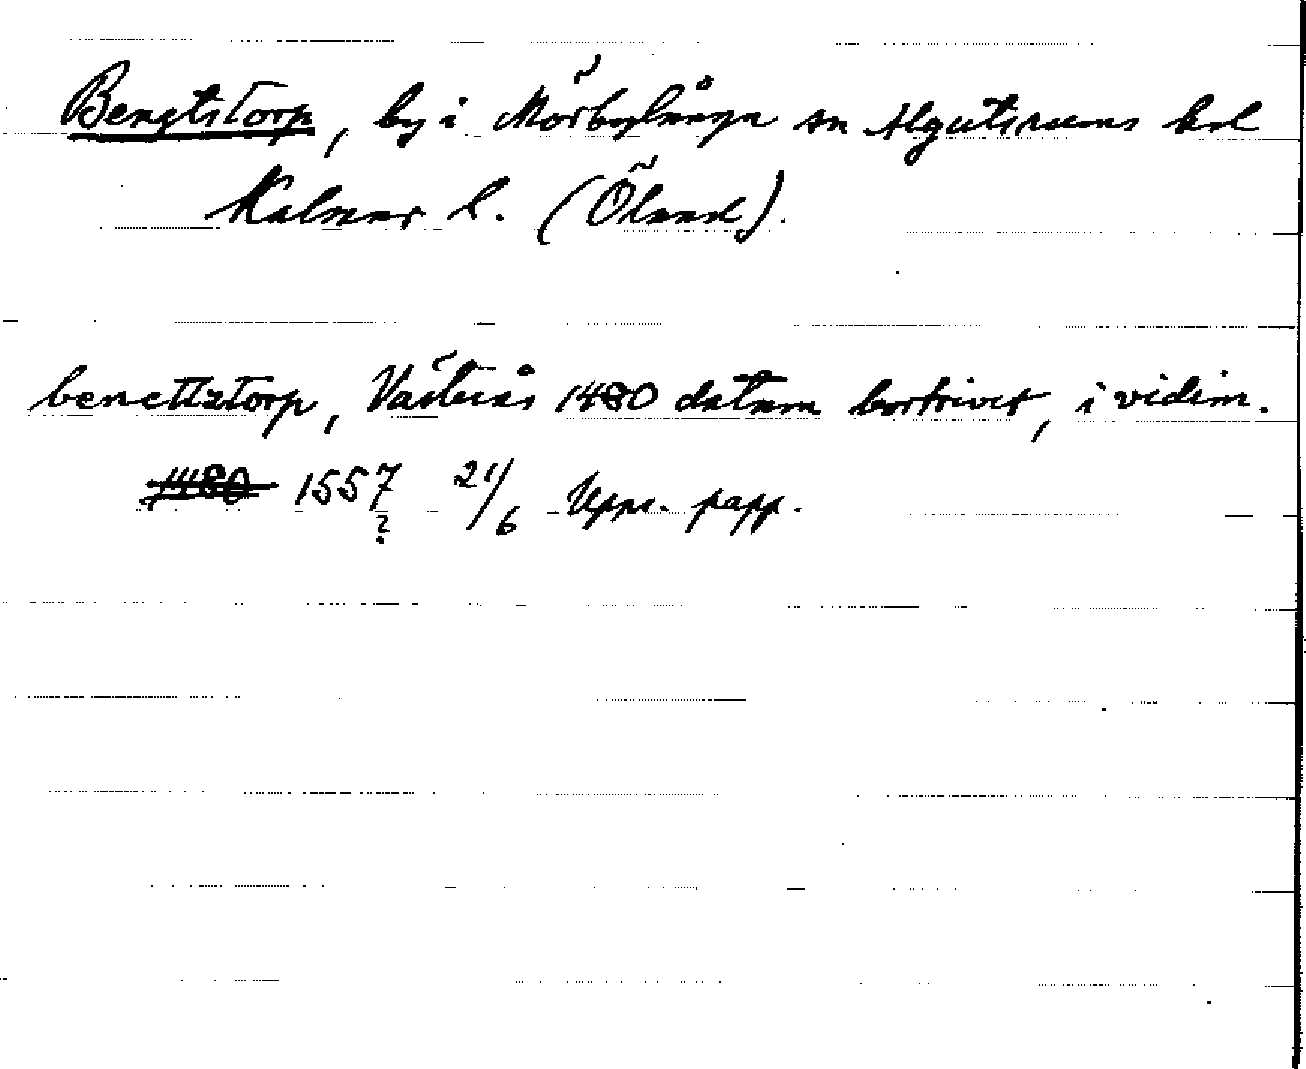 Bengtstorp, by i Mörbylånga sn Algutsrums hd
Kalmar l. (Öland).
benettztorp, Västerås 1480 datum bortrivet, i vidim.
1480 1557 21/6 Upps. papp.
?